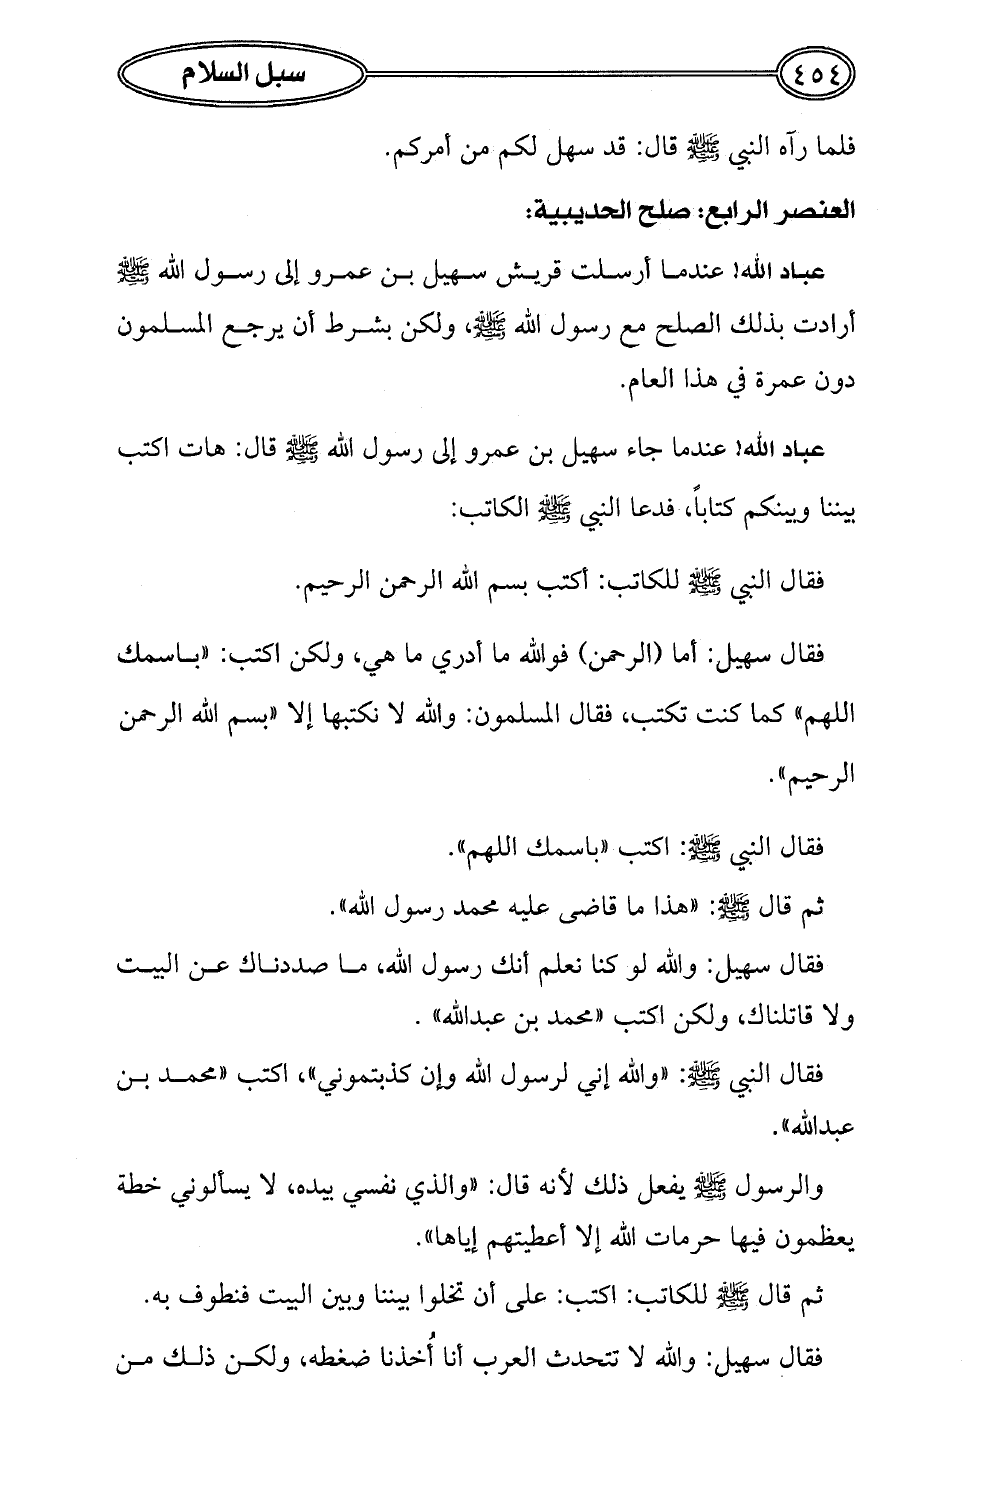 ٤٥٤ سبل السلام
فلما رآه النبي ﷺ قال: قد سهل لكم من أمركم.
العنصر الرابع: صلح الحديبية:
عباد الله! عندما أرسلت قريش سهيل بن عمرو إلى رسول الله ﷺ
أرادت بذلك الصلح مع رسول الله ﷺ، ولكن بشرط أن يرجع المسلمون
دون عمرة في هذا العام.
عباد الله! عندما جاء سهيل بن عمرو إلى رسول الله ﷺ قال: هات اكتب
بيننا وبينكم كتاباً، فدعا النبي ﷺ الكاتب:
فقال النبي ﷺ للكاتب: أكتب بسم الله الرحمن الرحيم.
فقال سهيل: أما (الرحمن) فوالله ما أدري ما هي، ولكن اكتب: «باسمك
اللهم» كما كنت تكتب، فقال المسلمون: والله لا نكتبها إلا «بسم الله الرحمن
الرحيم».
فقال النبي ﷺ: اكتب «باسمك اللهم».
ثم قال ﷺ: «هذا ما قاضى عليه محمد رسول الله».
فقال سهيل: والله لو كنا نعلم أنك رسول الله، ما صددناك عن البيت
ولا قاتلناك، ولكن اكتب «محمد بن عبدالله» .
فقال النبي ﷺ: «والله إني لرسول الله وإن كذبتموني»، اكتب «محمد بن
عبدالله».
والرسول ﷺ يفعل ذلك لأنه قال: «والذي نفسي بيده، لا يسألوني خطة
يعظمون فيها حرمات الله إلا أعطيتهم إياها».
ثم قال ﷺ للكاتب: اكتب: على أن تخلوا بيننا وبين البيت فنطوف به.
فقال سهيل: والله لا تتحدث العرب أنا أُخذنا ضغطه، ولكن ذلك من